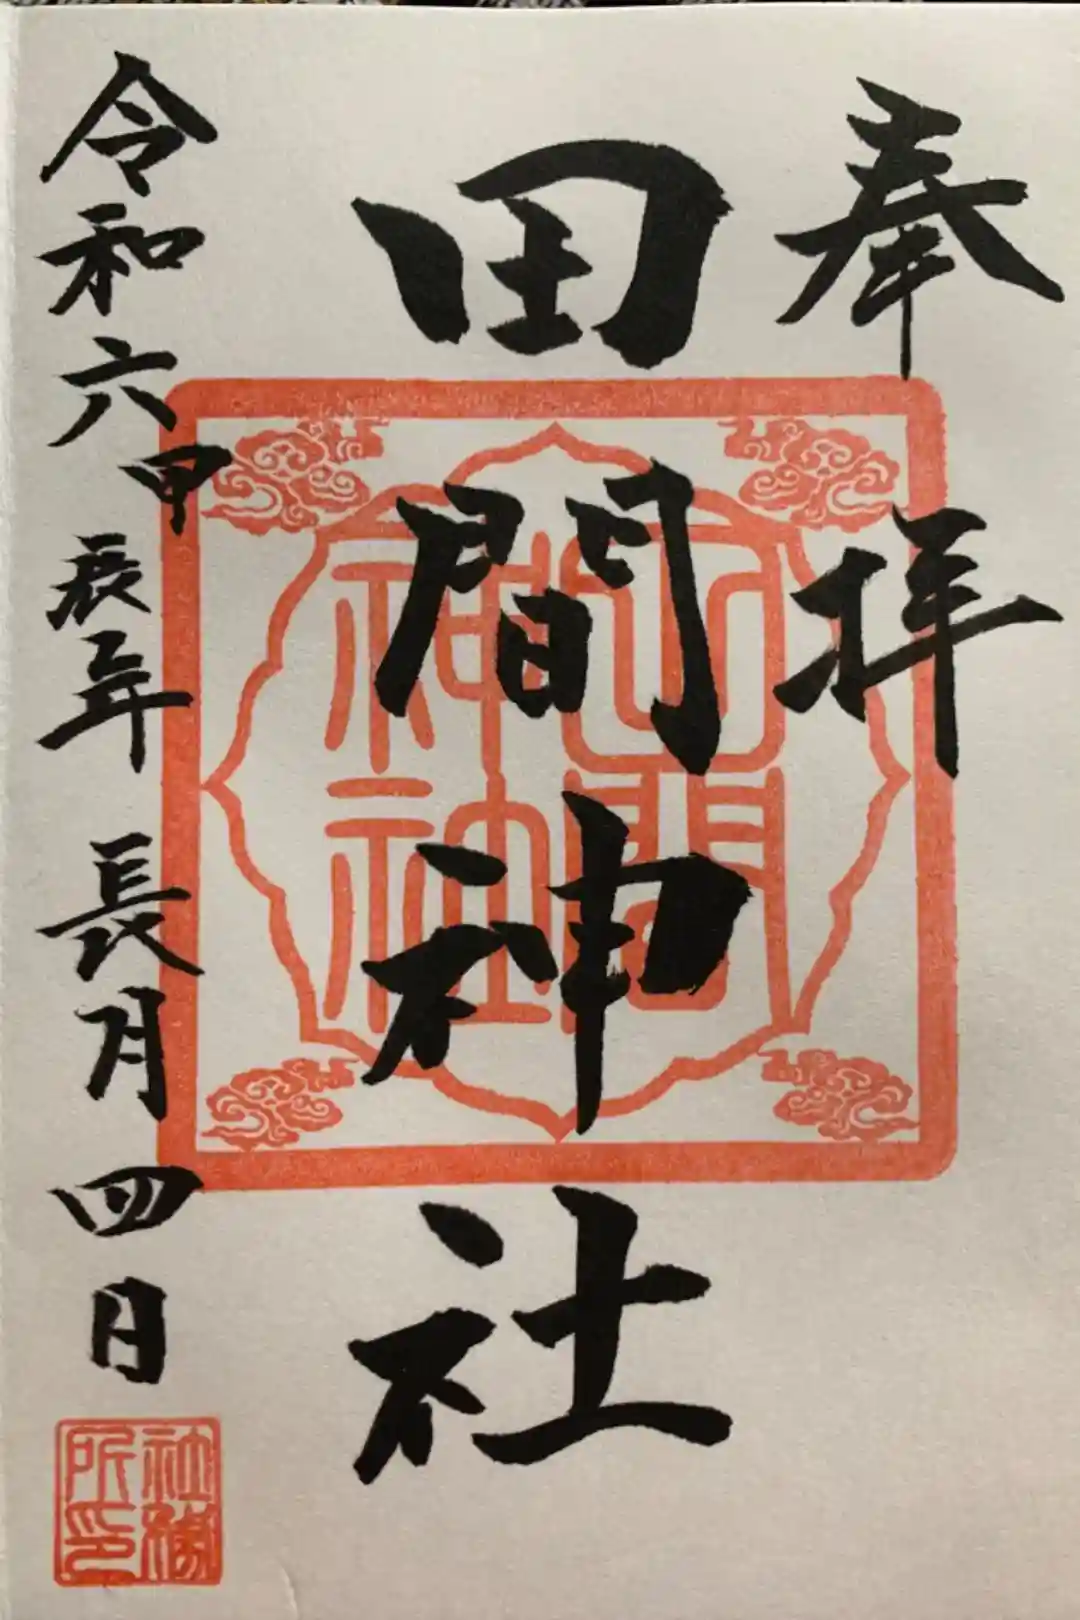 奉拝
田間神社
令和六甲辰年長月四日
田間神社
社務所印